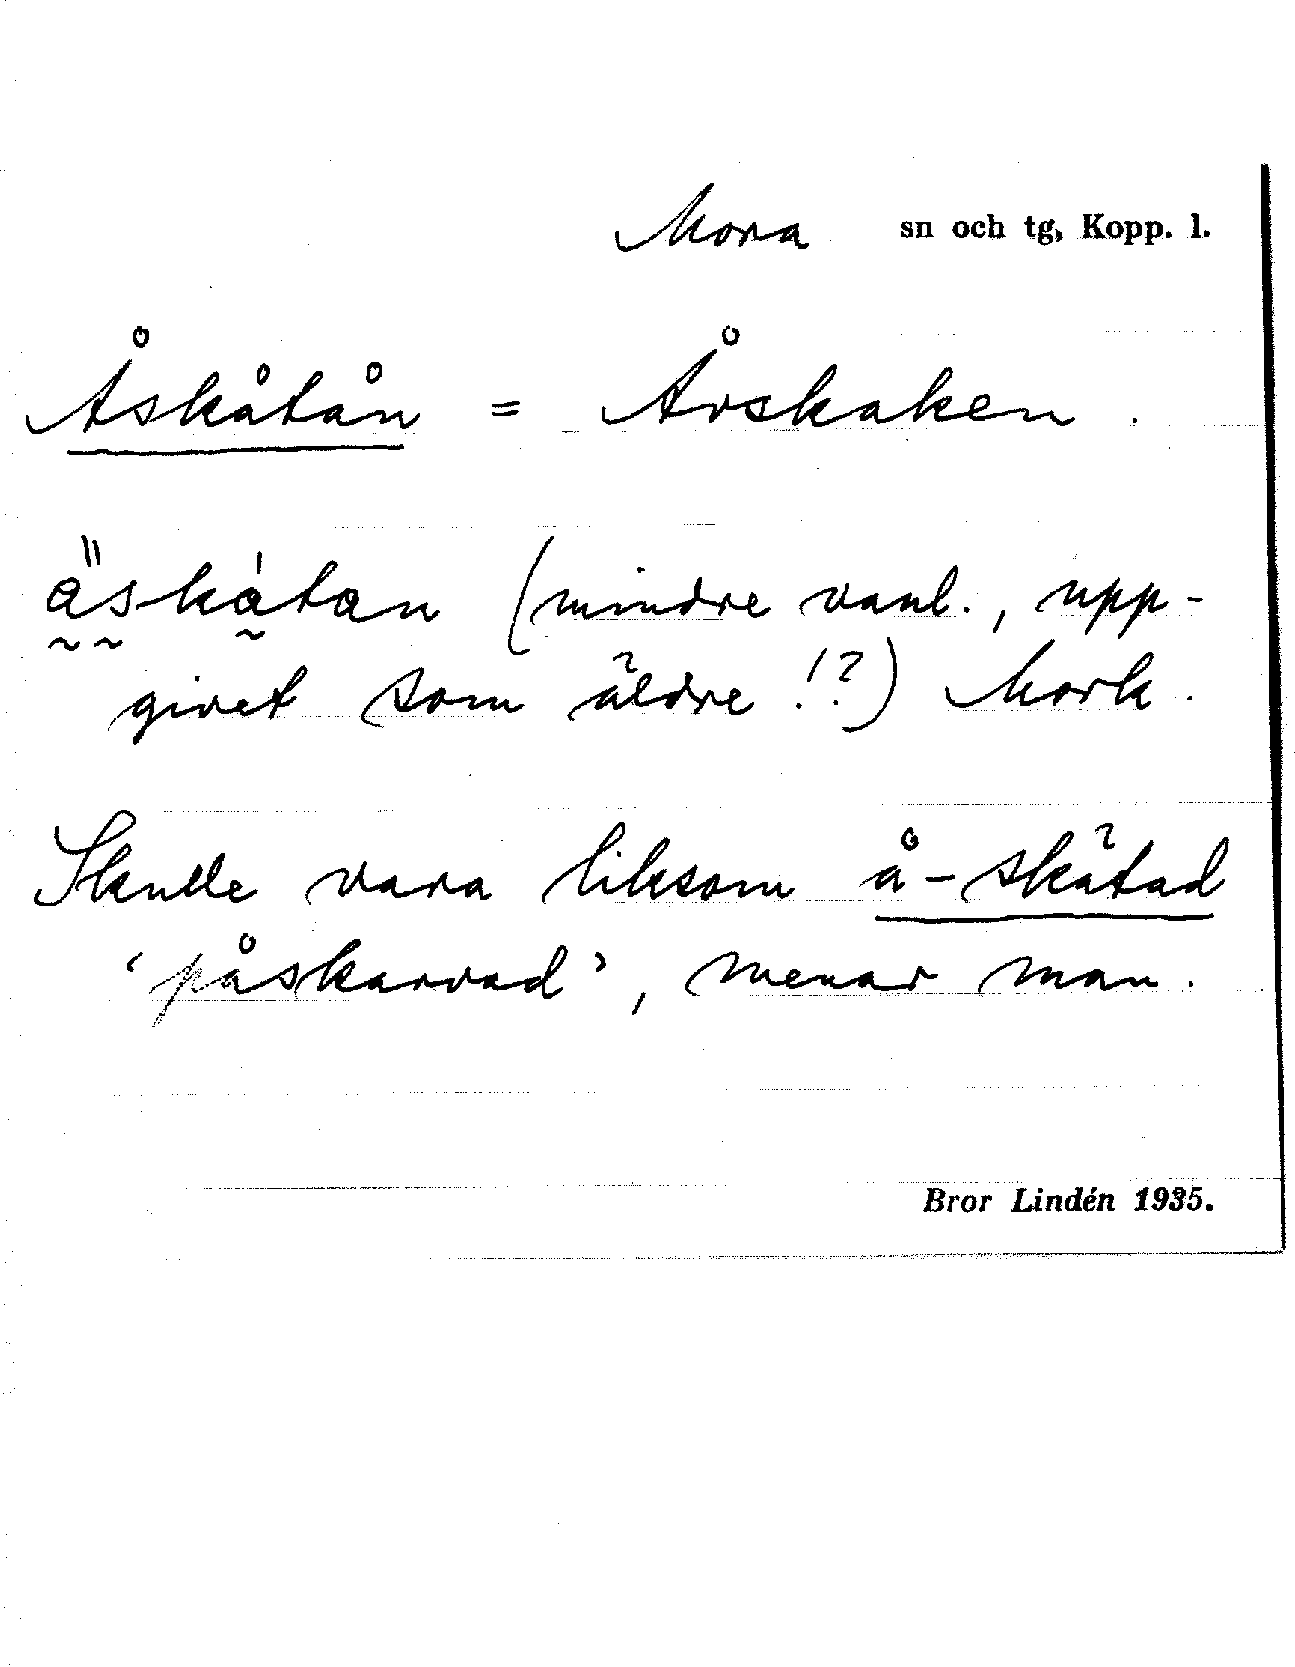 Mora sn och tg, Kopp. l.
Åskåtån = Årskaken.
äskátan (mindre vanl., upp-
givet som äldre!?) Mork.
Skulle vara liksom å-skätad
'påskarvad', menar man.
Bror Lindén 1935.